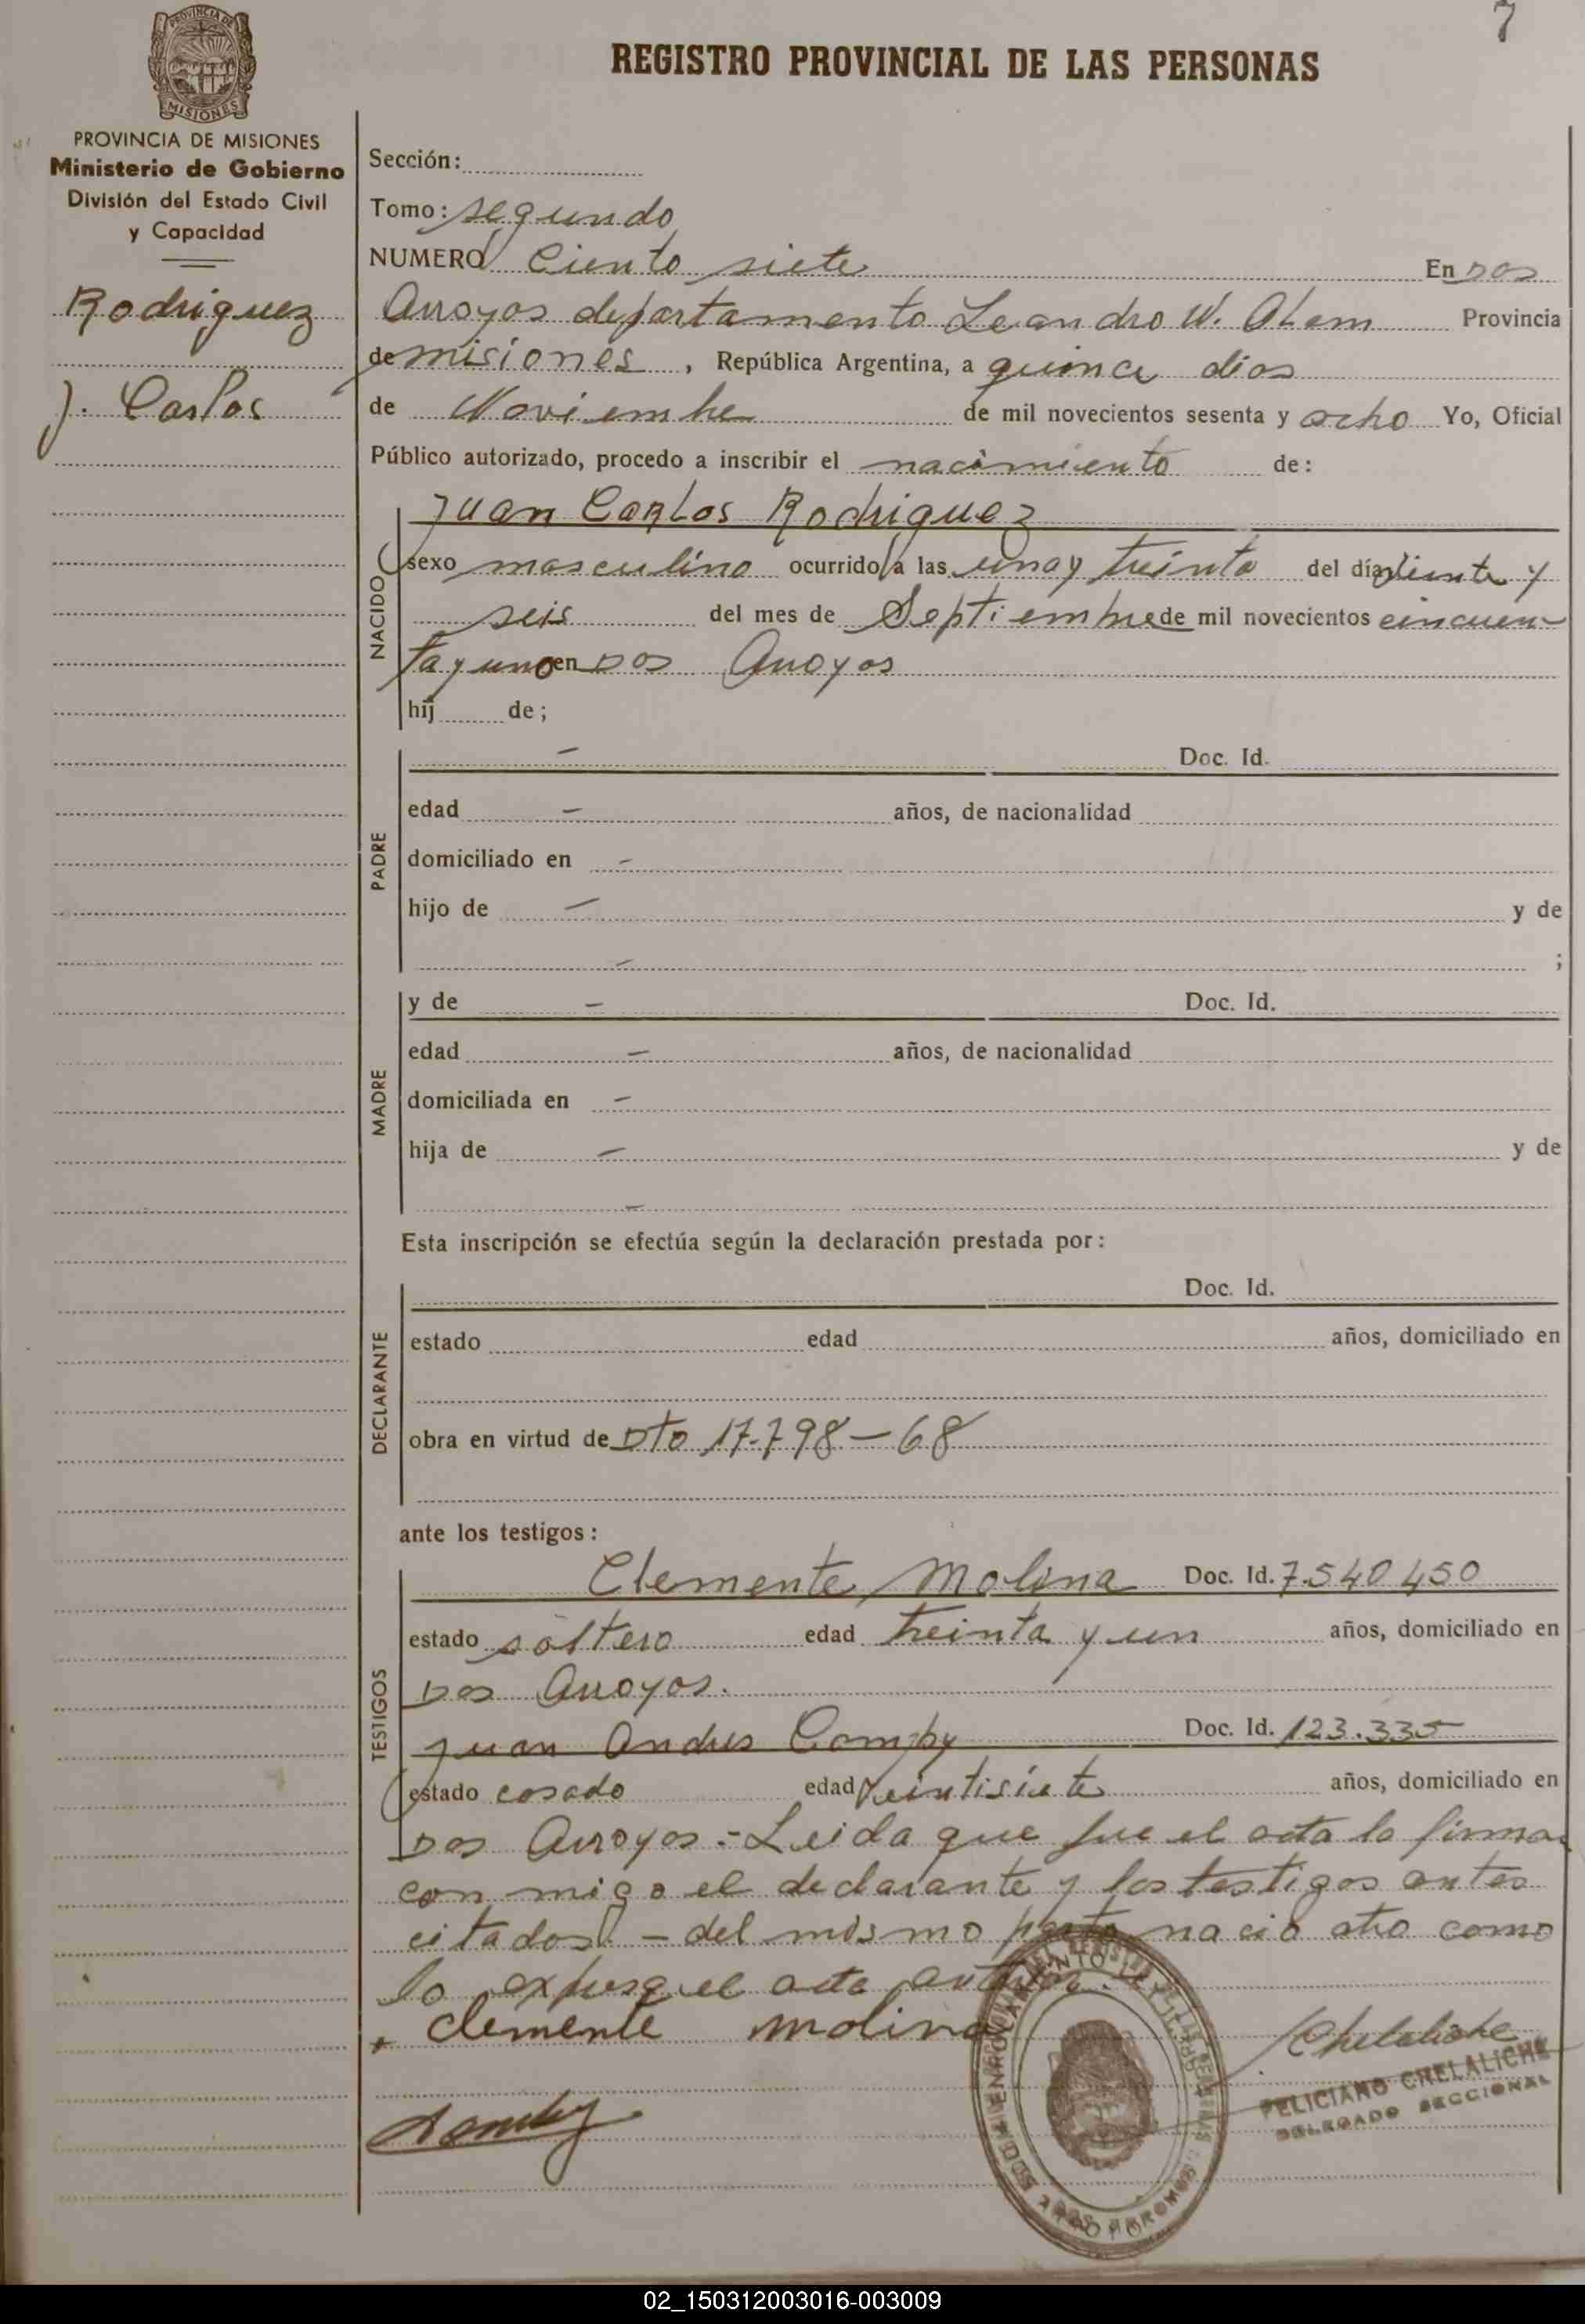 7
REGISTRO PROVINCIAL DE LAS PERSONAS
PROVINCIA DE MISIONES
MISIONES
PROVINCIA DE MISIONES
Ministerio de Gobierno
División del Estado Civil
y Capacidad
Rodriguez
J. Carlos
Sección:
Tomo: segundo
NUMERO Ciento siete En Dos
Arroyos departamento Leandro N. Alem Provincia
de misiones, República Argentina, a quince dias
de Noviembre de mil novecientos sesenta y ocho Yo, Oficial
Público autorizado, procedo a inscribir el nacimiento de:
NACIDO
Juan Carlos Rodriguez
sexo masculino ocurrido a las una y treinta del día veinte y
seis del mes de Septiembre de mil novecientos cincuen-
ta y uno en Dos Arroyos
hij de;
PADRE
– Doc. Id.
edad – años, de nacionalidad
domiciliado en –
hijo de – y de
– ;
MADRE
y de – Doc. Id.
edad – años, de nacionalidad
domiciliada en –
hija de – y de
–
Esta inscripción se efectúa según la declaración prestada por:
DECLARANTE
Doc. Id.
estado edad años, domiciliado en
obra en virtud de Dto 17.798-68
ante los testigos:
TESTIGOS
Clemente Molina Doc. Id. 7.540.450
estado soltero edad treinta y un años, domiciliado en
Dos Arroyos.
Juan Andres Comby Doc. Id. 123.335
estado casado edad veintisiete años, domiciliado en
Dos Arroyos.- Leida que fue el acta la firman
con migo el declarante y los testigos antes
citados. - del mismo parto nacio otro como
lo expresa el acta anterior.
+ Clemente molina
Chelaliche
FELICIANO CHELALICHE
DELEGADO SECCIONAL
02_150312003016-003009